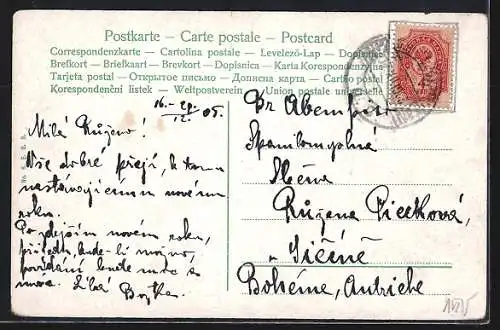 Postkarte – Carte postale – Postcard
Correspondenzkarte – Cartolina postale – Levelező-Lap – Dopisnice
Brefkort – Briefkaart – Brevkort – Dopisnica – Karta Korespondencyjna
Tarjeta postal – Открытое письмо – Дописна карта – Cartão postal
Korespondenční listek – Weltpostverein – Union postale universelle
16.
12. 05.
Milá Růženo!
Vše dobré přeji, k tomu
nastávajícímu novému
roku.
Po zdejším novém roku,
přijedu, bude-li možno,
povídání bude moc a
moc. Líbá
Br
Blahorodná
slečna
Růžena
v Jičíně
Bohéme, Autriche